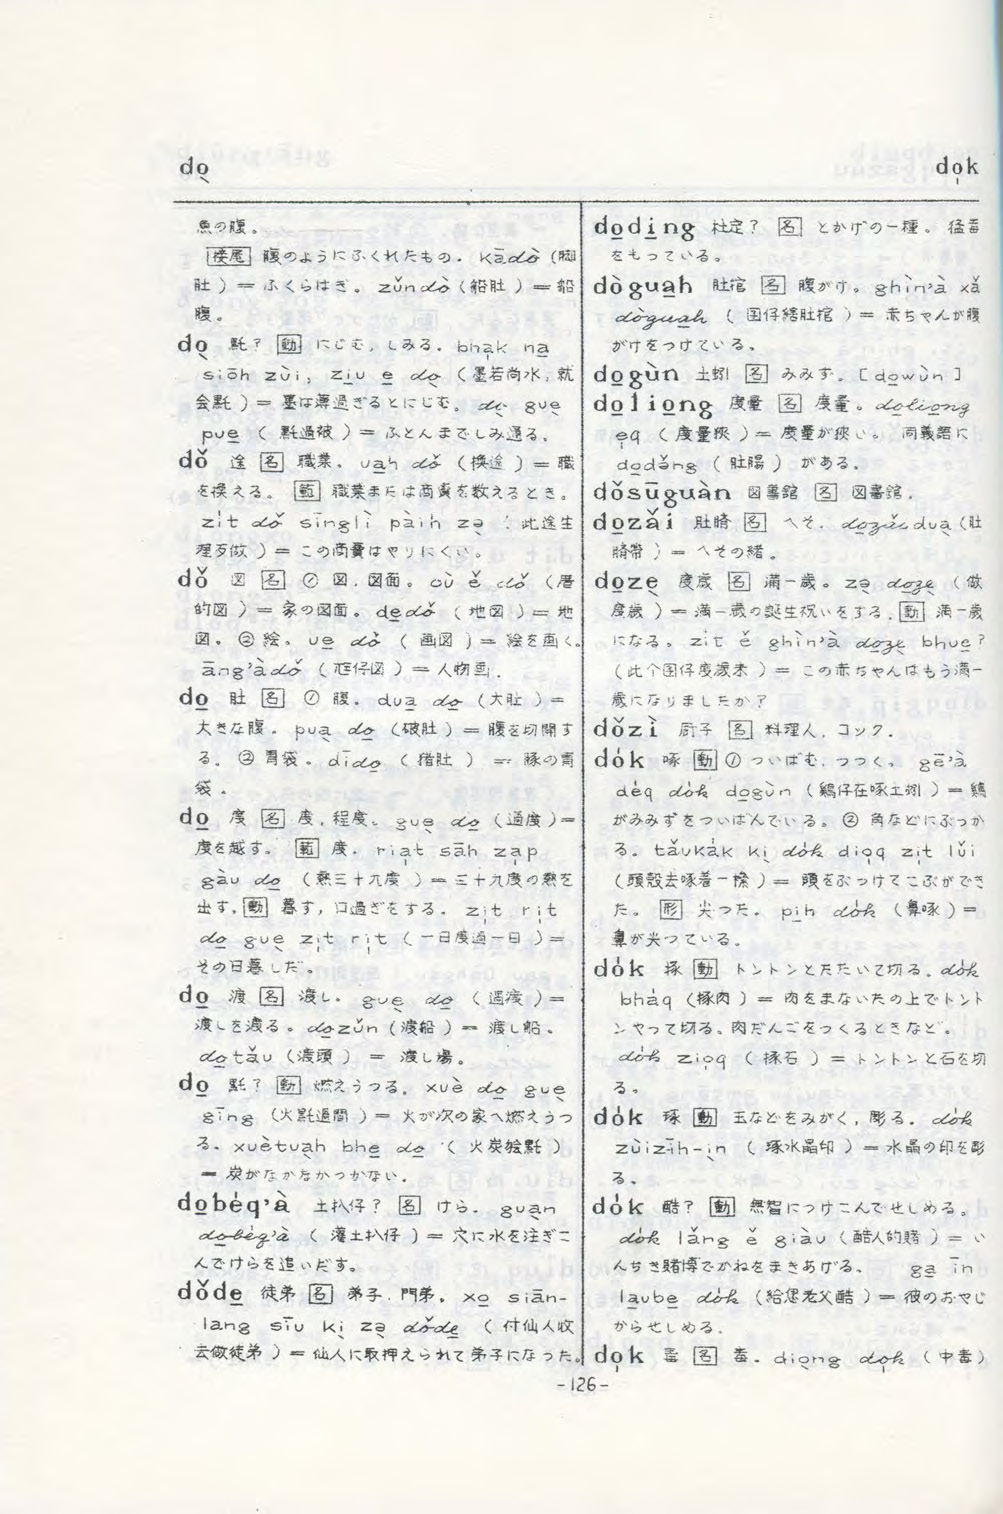 dọ̱
dọk
魚の腹。
[接尾] 腹のようにふくれたもの. kādò (脚
肚) = ふくらはぎ。 zǔndò (船肚) = 船
腹。
do̱ 黗? [動] にじむ, しみる. bhak na
siōh zùi, ziu e do (墨若尚水, 就
会黗) = 墨は薄過ぎるとにじむ。 do gue
pue (黗過被) = ふとんまでしみ通る.
dǒ 途 [名] 職業. uah dǒ (換途) = 職
を換える。 [範] 職業または商賣を数えるとき。
zit dǒ singlì pàih ze (此途生
理歹做) = この商賣はやりにくい。
dǒ 図 [名] ① 図. 図面. cù ě dǒ (厝
的図) = 家の図面. dedǒ (地図) = 地
図. ② 絵. ue dǒ (画図) = 絵を画く.
āng'àdǒ (尪仔図) = 人物画.
do 肚 [名] ① 腹. dua do (大肚) =
大きな腹. pua do (破肚) = 腹を切開す
る. ② 胃袋. dīdo (猪肚) = 豚の胃
袋.
do 度 [名] 度, 程度. gue do (過度) =
度を越す. [範] 度. riat sāh zap
gàu do (熱三十九度) = 三十九度の熱を
出す. [動] 暮す, 口過ぎをする. zit rit
do gue zit rit (一日度過一日) =
その日暮しだ.
do 渡 [名] 渡し. gue do (過渡) =
渡しを渡る. dozǔn (渡船) = 渡し船.
dotǎu (渡頭) = 渡し場.
do 黗? [動] 燃えうつる. xuè do gue
gīng (火黗過間) = 火が次の家へ燃えうつ
る. xuètuah bhe do (火炭 黗)
= 炭がなかなかつかない.
dobéq'à 土扒仔? [名] けら. guan
dobéq'à (灌土扒仔) = 穴に水を注ぎこ
んでけらを追いだす.
dǒde 徒弟 [名] 弟子. 門弟. xo siān-
lang sīu ki ze dǒde (付仙人收
去做徒弟) = 仙人に取押えられて弟子になった.
doding 杜定? [名] とかげの一種. 猛毒
をもっている.
dòguah 肚捾 [名] 腹がけ. ghìn'à xǎ
dòguah (囡仔 肚捾) = 赤ちゃんが腹
がけをつけている.
dogùn 土蚓 [名] みみず. [dowùn]
doliong 度量 [名] 度量. doliong
eq (度量狹) = 度量が狹い. 同義語に
dodǎng (肚腸) がある.
dǒsūguàn 図書館 [名] 図書館.
dozǎi 肚臍 [名] へそ. dozǎidua (肚
臍帶) = へその緒.
doze 度歳 [名] 満一歳. ze doze (做
度歳) = 満一歳の誕生祝いをする. [動] 満一歳
になる. zit ě ghìn'à doze bhue?
(此个囡仔度歳未) = この赤ちゃんはもう満一
歳になりましたか?
dǒzì 厨子 [名] 料理人. コック.
dók 啄 [動] ① ついばむ, つつく. gē'à
déq dók dogùn (鷄仔在啄土蚓) = 鷄
がみみずをついばんでいる. ② 角などにぶつか
る. tǎukák ki dók dioq zit lǔi
(頭殼去啄着一擂) = 頭をぶつけてこぶができ
た. [形] 尖った. pih dók (鼻啄) =
鼻が尖っている.
dók 捯 [動] トントンとたたいて切る. dók
bháq (捯肉) = 肉をまないたの上でトント
ンやって切る. 肉だんごをつくるときなど.
dók zioq (捯石) = トントンと石を切
る.
dók 琢 [動] 玉などをみがく, 彫る. dók
zùizīh-in (琢水晶印) = 水晶の印を彫
る.
dók 酷? [動] 無智につけこんでせしめる.
dók lǎng ě giàu (酷人的賭) = い
んちき賭博でかねをまきあげる. ga īn
laube dók (給 老父酷) = 彼のおやじ
からせしめる.
dọk 毒 [名] 毒. diong dọk (中毒)
-126-